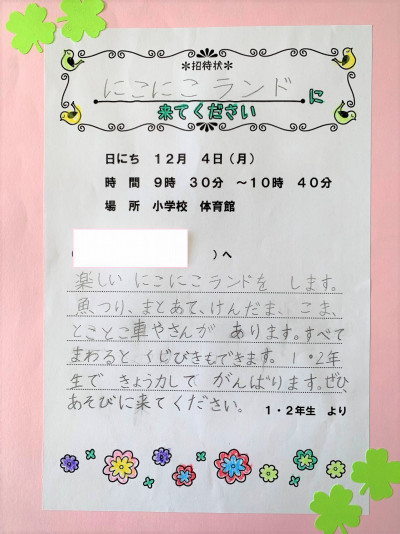 ＊招待状＊
にこにこランドに
来てください
日にち　１２月　４日（月）
時　間　９時　３０分　～１０時　４０分
場　所　小学校　体育館
）へ
楽しい にこにこランドを します。
魚つり、まとあて、けんだま、こま、
とことこ車やさんが あります。すべて
まわると、くじびきもできます。１・２年
生で きょう力して がんばります。ぜひ、
あそびに来てください。
１・２年生　より